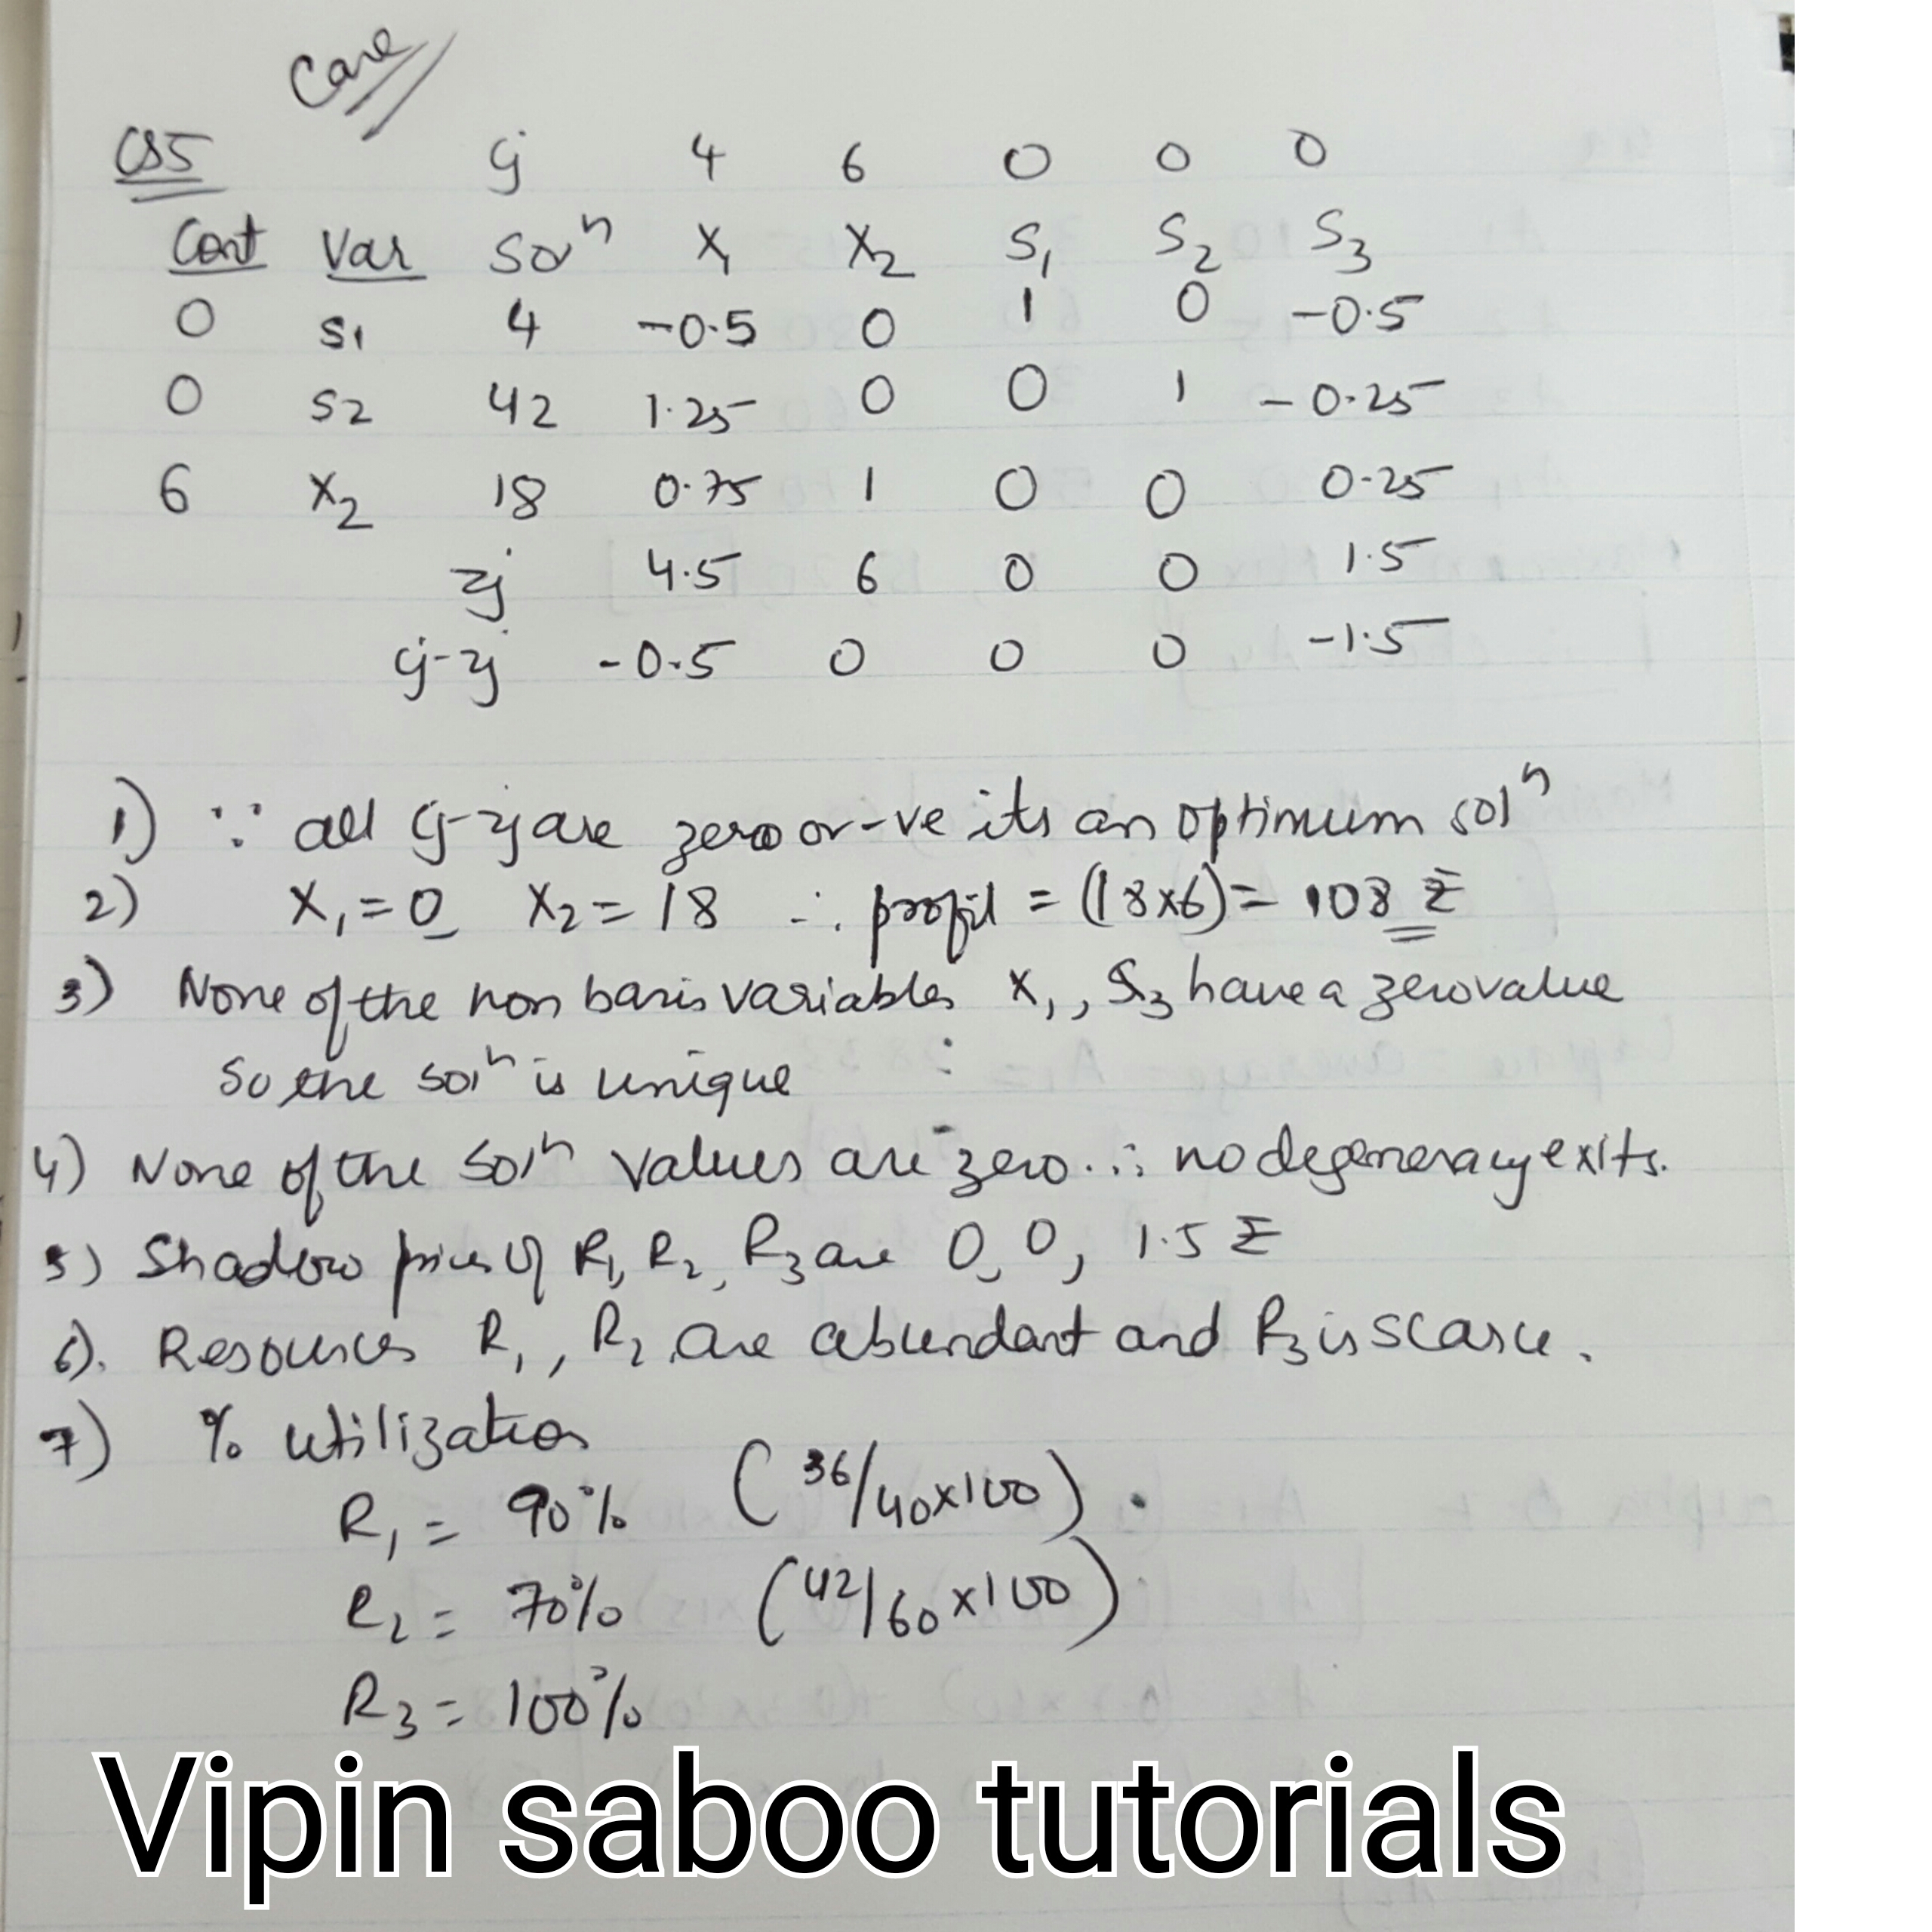 Case
CS5 Cj 4 6 0 0 0
Cont Var Solⁿ X₁ X₂ S₁ S₂ S₃
0 S1 4 -0.5 0 1 0 -0.5
0 S2 42 1.25 0 0 1 -0.25
6 X₂ 18 0.75 1 0 0 0.25
zj 4.5 6 0 0 1.5
Cj-zj -0.5 0 0 0 -1.5
1) ∵ all Cj-zj are zero or -ve its an optimum solⁿ
2) X₁ = 0 X₂ = 18 ∴ profit = (18x6) = 108 ₹
3) None of the non basis variables X₁, S₃ have a zero value
So the solⁿ is unique
4) None of the solⁿ values are zero ∴ no degeneracy exits.
5) Shadow prices of R₁, R₂, R₃ are 0, 0, 1.5 ₹
6). Resources R₁, R₂ are abundant and R₃ is scarce.
7) % utilization
R₁ = 90% (36/40x100)
R₂ = 70% (42/60x100)
R₃ = 100%
Vipin saboo tutorials